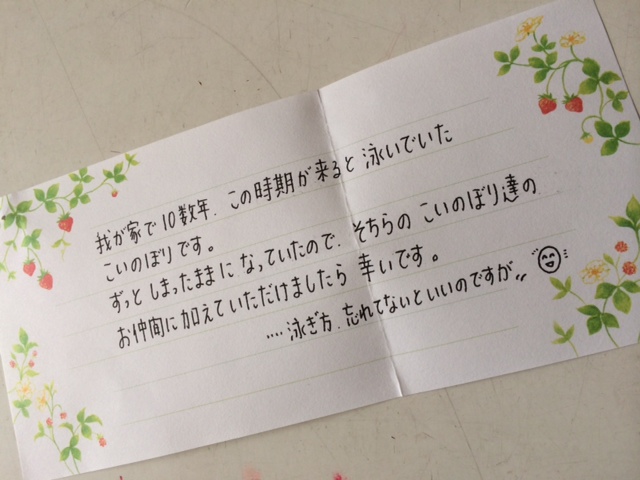 我が家で10数年、この時期が来ると泳いでいた
こいのぼりです。
ずっとしまったままになっていたので、そちらのこいのぼり達の
お仲間に加えていただけましたら幸いです。
....泳ぎ方、忘れてないといいのですが〟